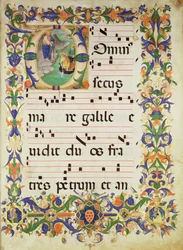 Dominus
secus
ma re galile e
uidit du os fra
tres petrum et an